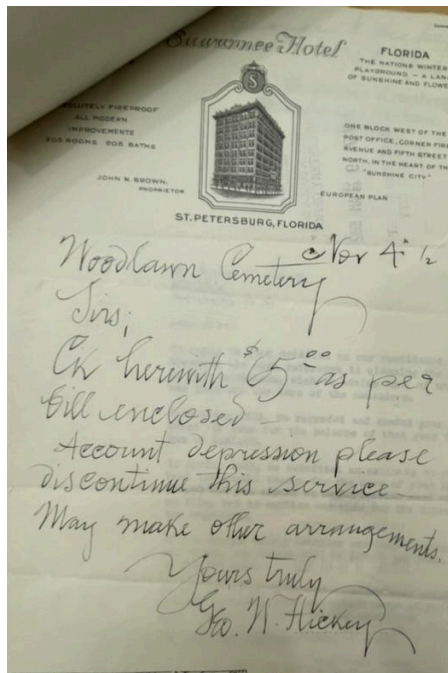 Suwannee Hotel
FLORIDA
THE NATIONS WINTER
PLAYGROUND – A LAND
OF SUNSHINE AND FLOWE
ABSOLUTELY FIREPROOF
ALL MODERN
IMPROVEMENTS
205 ROOMS 205 BATHS
JOHN N. BROWN,
PROPRIETOR
S
ONE BLOCK WEST OF THE
POST OFFICE, CORNER FIRS
AVENUE AND FIFTH STREET
NORTH, IN THE HEART OF TH
"SUNSHINE CITY"
EUROPEAN PLAN
ST. PETERSBURG, FLORIDA
Nov 4
Woodlawn Cemetery
Sirs;
Ck herewith $65 00 as per
bill enclosed –
Account depression please
discontinue this service –
May make other arrangements.
Yours truly
Geo. W. Hickey